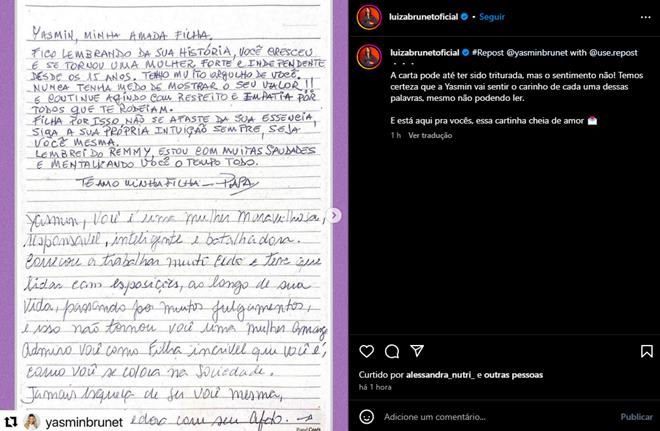 YASMIN, MINHA AMADA FILHA.
FICO LEMBRANDO DA SUA HISTÓRIA, VOCÊ CRESCEU
E SE TORNOU UMA MULHER FORTE E INDEPENDENTE
DESDE OS 15 ANOS. TENHO MUITO ORGULHO DE VOCÊ.
NUNCA TENHA MEDO DE MOSTRAR O SEU VALOR!!
E CONTINUE AGINDO COM RESPEITO E EMPATIA POR
TODOS QUE TE RODEIAM.
FILHA POR ISSO, NÃO SE AFASTE DA SUA ESSENCIA,
SIGA A SUA PRÓPRIA INTUIÇÃO SEMPRE, SEJA
VOCÊ MESMA.
LEMBREI DO REMMY, ESTOU COM MUITAS SAUDADES
E MENTALIZANDO VOCÊ O TEMPO TODO.
TE AMO MINHA FILHA – PAPA
Yasmin, você é uma mulher maravilhosa,
responsável, inteligente e batalhadora.
Começou a trabalhar muito cedo e teve que
lidar com exposições, ao longo de sua
vida, passando por muitos julgamentos,
e isso não tornou você uma mulher amarga
Admiro você como filha incrível que você é,
como você se coloca na sociedade.
Jamais esqueça de ser você mesma,
com seu
yasminbrunet
luizabrunetoficial • Seguir
luizabrunetoficial #Repost @yasminbrunet with @use.repost
・・・
A carta pode até ter sido triturada, mas o sentimento não! Temos
certeza que a Yasmin vai sentir o carinho de cada uma dessas
palavras, mesmo não podendo ler.
E está aqui pra vocês, essa cartinha cheia de amor 💌
1 h Ver tradução
Curtido por alessandra_nutri_ e outras pessoas
há 1 hora
Adicione um comentário...
Publicar